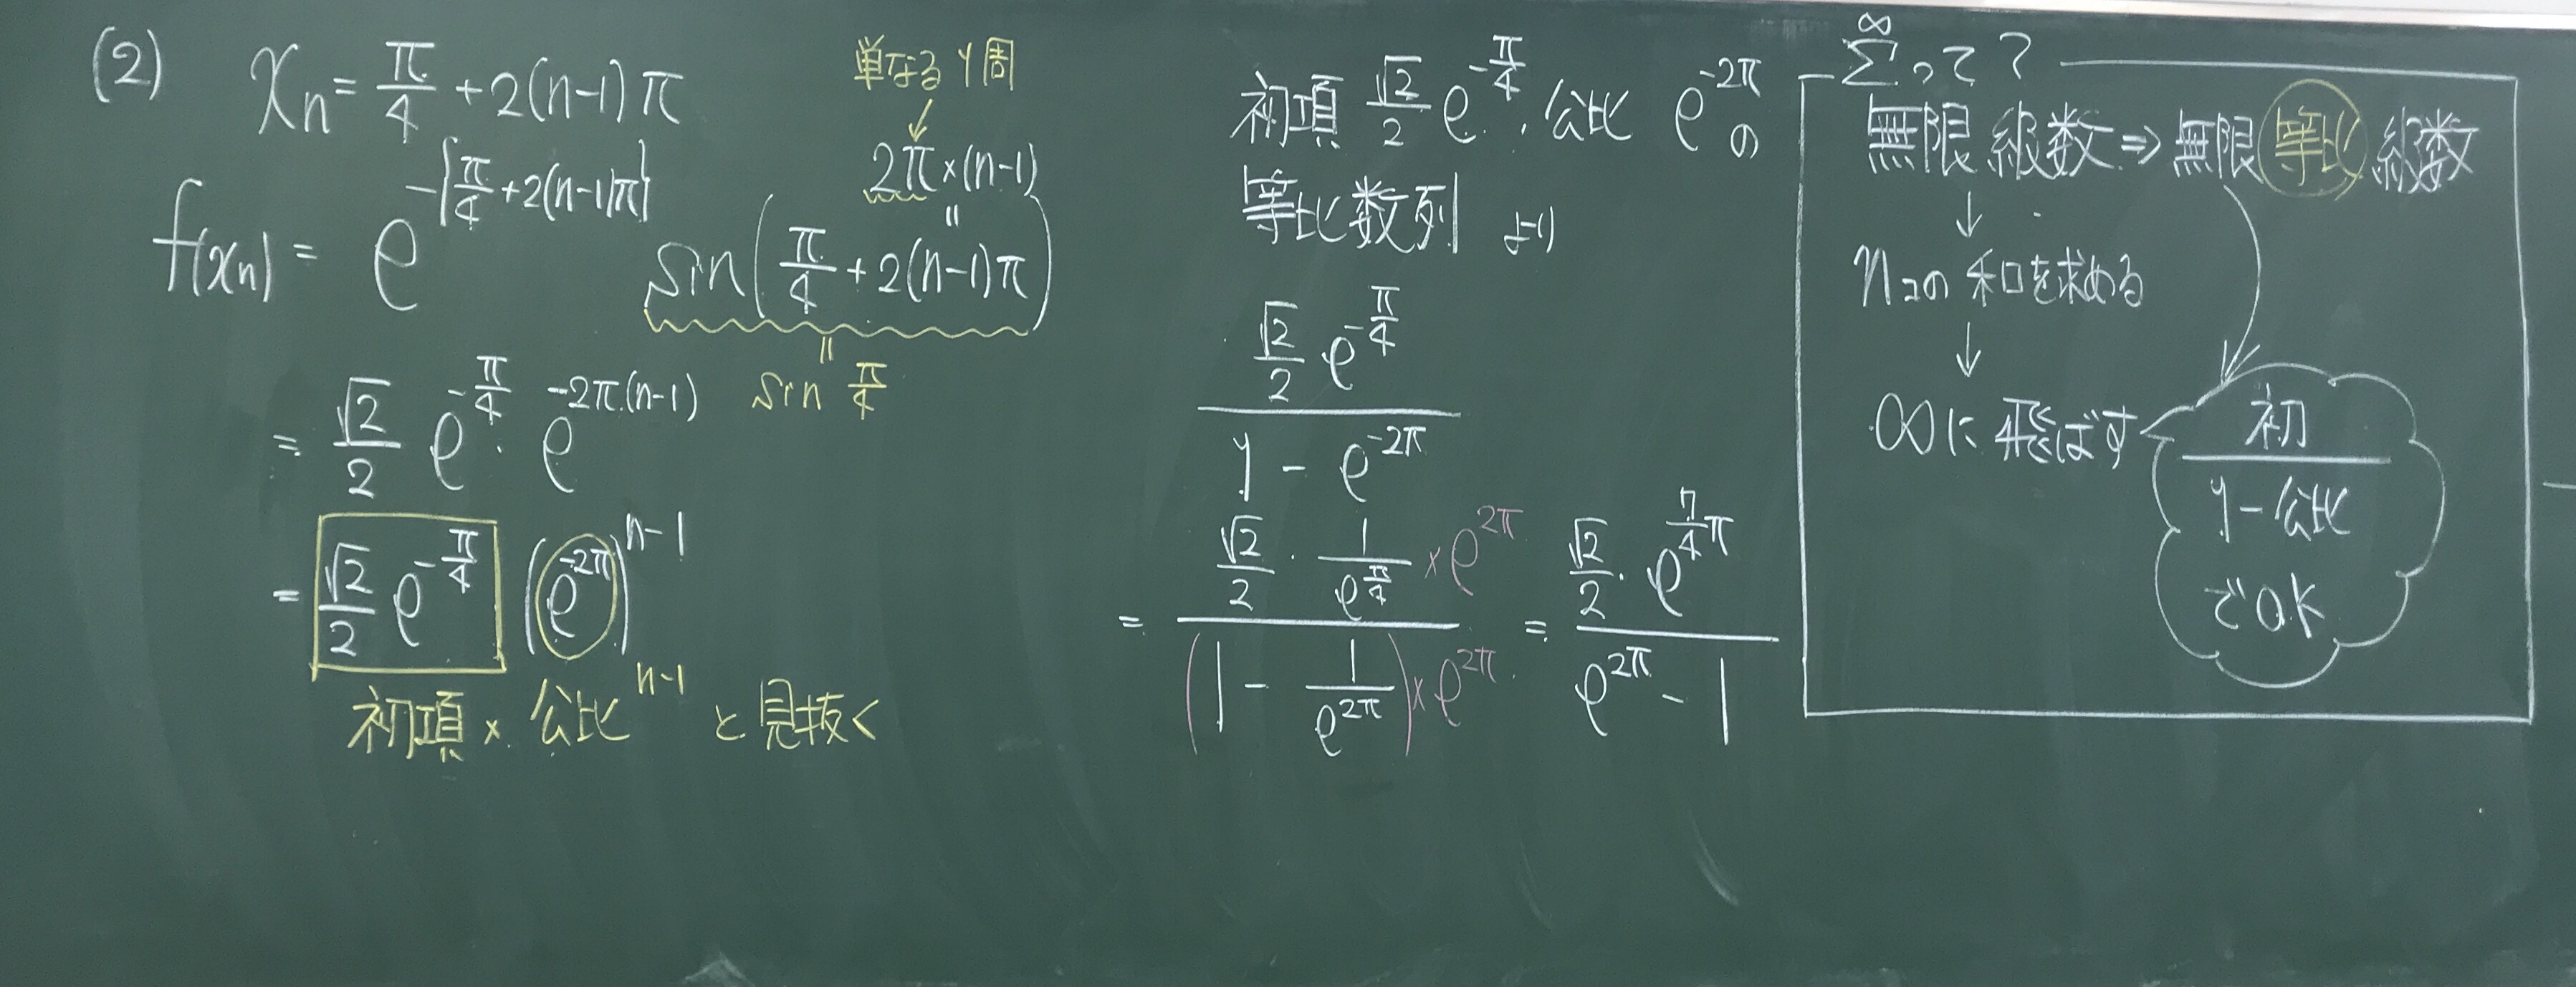 (2) xₙ = π/4 + 2(n-1)π
f(xₙ) = e^{-{π/4+2(n-1)π}} sin(π/4 + 2(n-1)π)
単なる1周
↓
2π×(n-1)
=
= sin π/4
= √2/2 e^{-π/4} · e^{-2π·(n-1)}
= √2/2 e^{-π/4} (e^{-2π})^{n-1}
初項 × 公比^{n-1} と見抜く
初項 √2/2 e^{-π/4}, 公比 e^{-2π} の
等比数列 より
(√2/2 e^{-π/4}) / (1 - e^{-2π})
= (√2/2 · 1/e^{π/4} × e^{2π}) / ((1 - 1/e^{2π}) × e^{2π}) = (√2/2 · e^{7/4 π}) / (e^{2π} - 1)
∞
Σって?
無限級数 ⇒ 無限等比級数
↓
nコの和を求める
↓
∞に飛ばす
初
1-公比
でOK